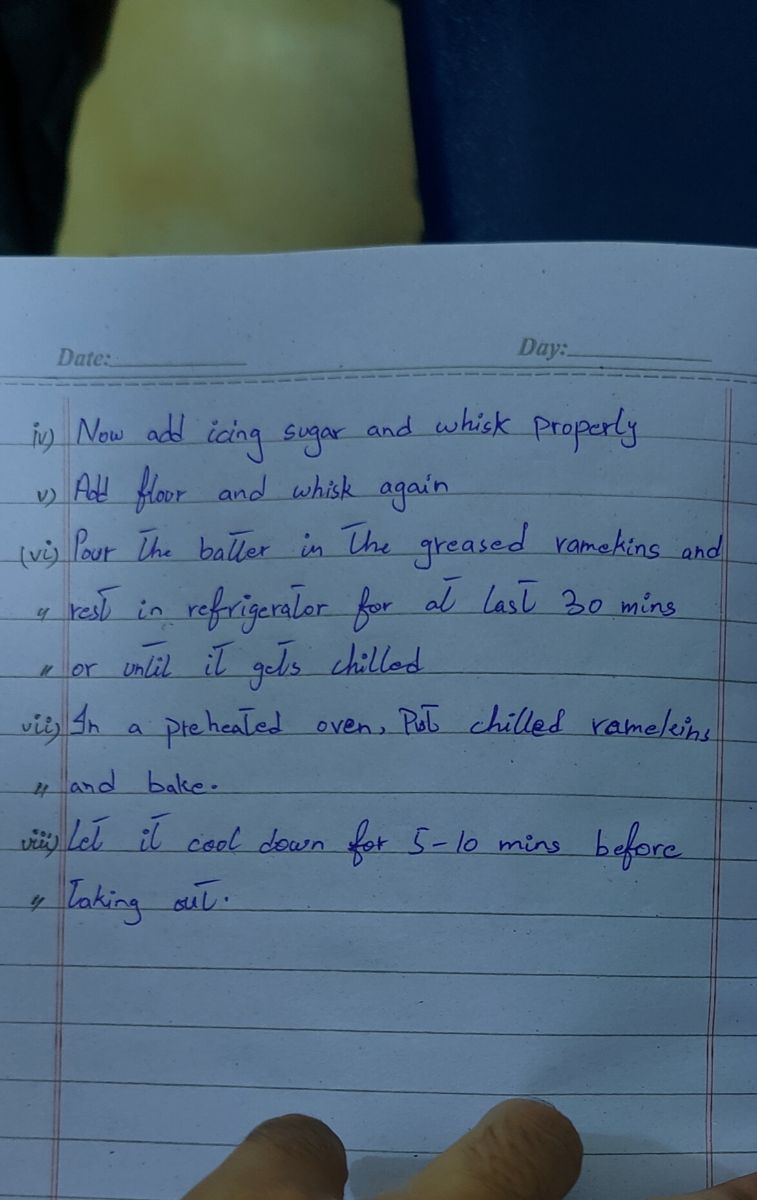 Date:
Day:
iv) Now add icing sugar and whisk properly
v) Add floor and whisk again
(vi) Pour the batter in the greased ramekins and
" rest in refrigerator for at last 30 mins
" or until it gets chilled
vii) In a preheated oven, Put chilled ramekins
" and bake.
viii) Let it cool down for 5-10 mins before
" taking out.